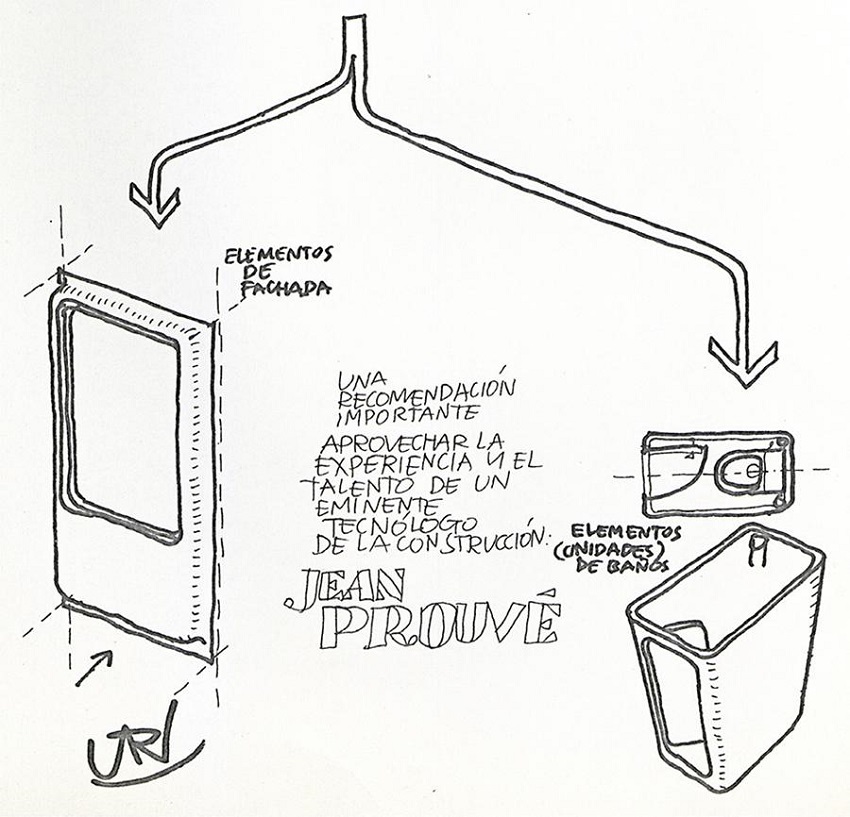 ELEMENTOS
DE
FACHADA
UNA
RECOMENDACIÓN
IMPORTANTE
APROVECHAR LA
EXPERIENCIA Y EL
TALENTO DE UN
EMINENTE
TECNÓLOGO
DE LA CONSTRUCCIÓN:
JEAN
PROUVÉ
ELEMENTOS
(UNIDADES)
DE BAÑOS